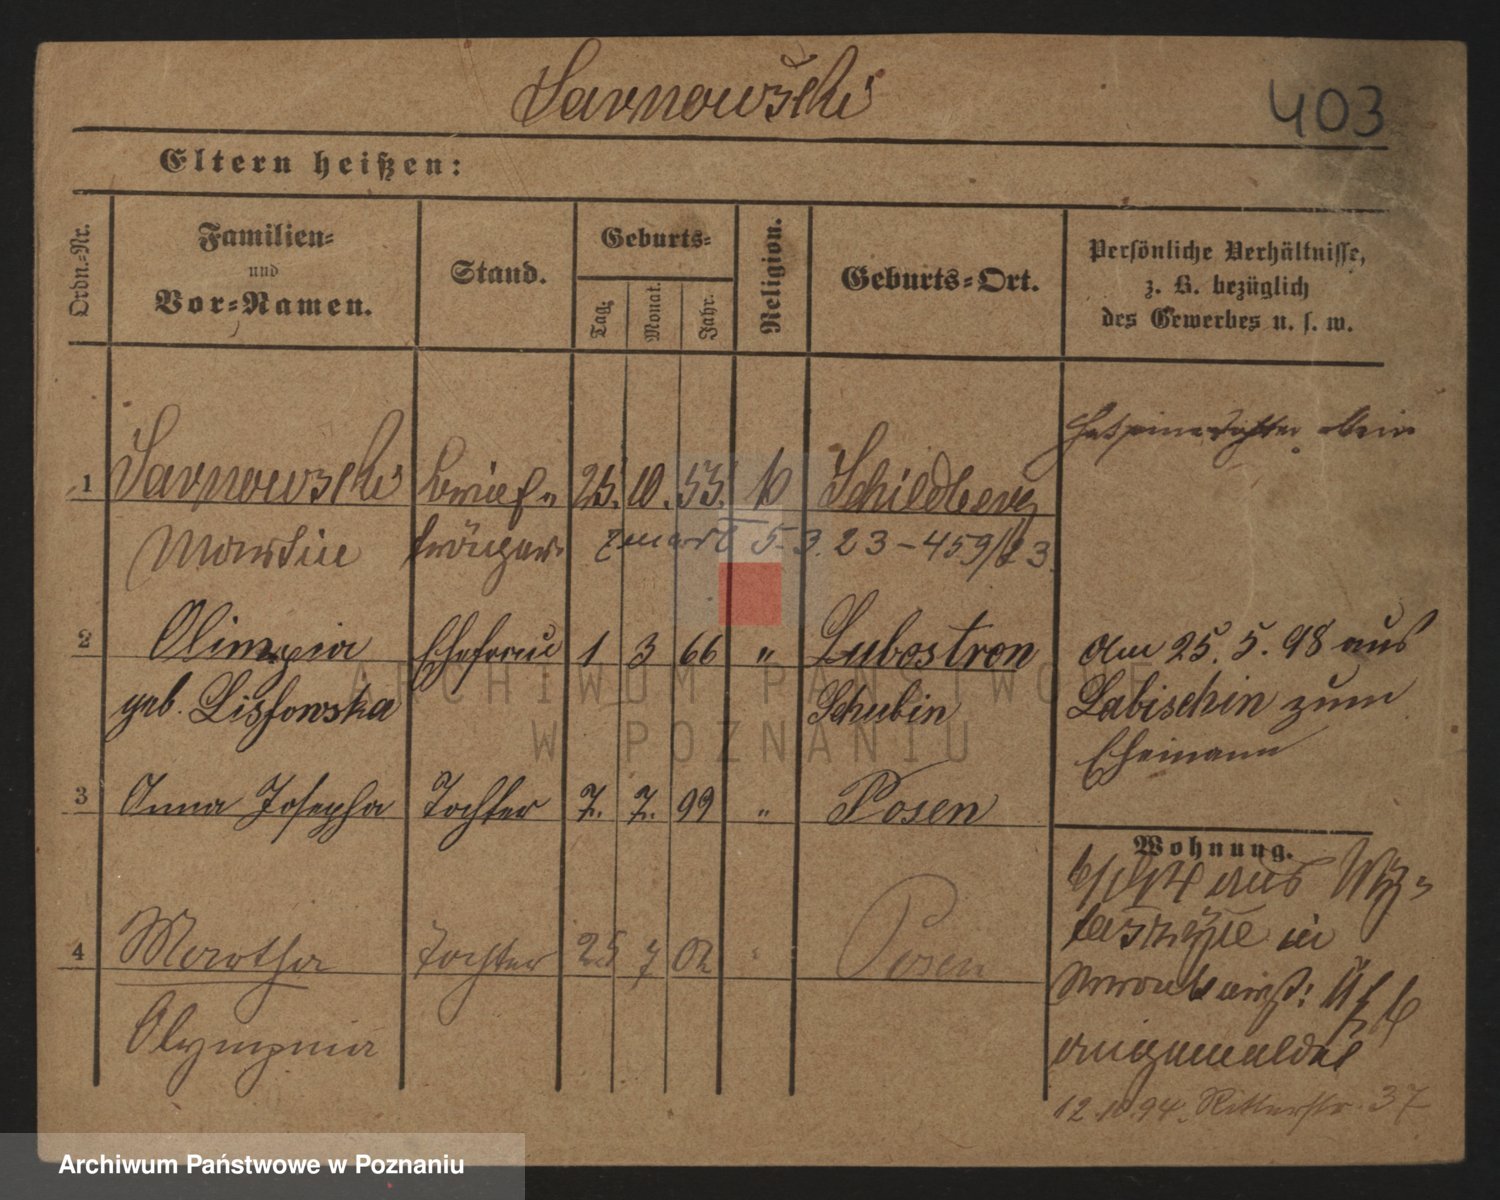 Sarnowski
403
Eltern heißen:
Ordn.-Nr.
Familien- und Vor-Namen.
Stand.
Geburts-
Tag.
Monat.
Jahr.
Religion.
Geburts-Ort.
Persönliche Verhältnisse,
z. B. bezüglich
des Gewerbes u. s. w.
1 Sarnowski Brief- 25. 10. 53. k Schildberg
Martin träger
zmarł 5.3.23-459/23.
2 Olimpia Ehefrau 1 3 66 " Lubostron
geb. Lissowska Schubin
am 25. 5. 98 aus
Labischin zum
Ehemann
3 Anna Josepha Tochter 7. 7. 99 " Posen
Wohnung.
aus
in
angemeldet
12.10.94. Ritterstr. 37
4 Martha Tochter 25 7 02 " Posen
Olympia
ARCHIWUM PAŃSTWOWE
W POZNANIU
Archiwum Państwowe w Poznaniu